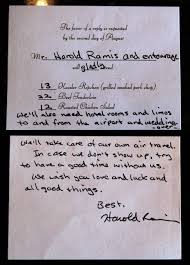 The favor of a reply is requested
by the second day of August
Mr. Harold Ramis and entourage
will gladly
13 Kassler Ripchen (grilled smoked pork chop)
22 Beef Tenderloin
12 Roasted Chicken Salad
We'll also need hotel rooms and limos
to and from the airport and wedding.
over
We'll take care of our own air travel.
In case we don't show up, try
to have a good time without us.
We wish you love and luck and
all good things.
Best.
Harold Ramis